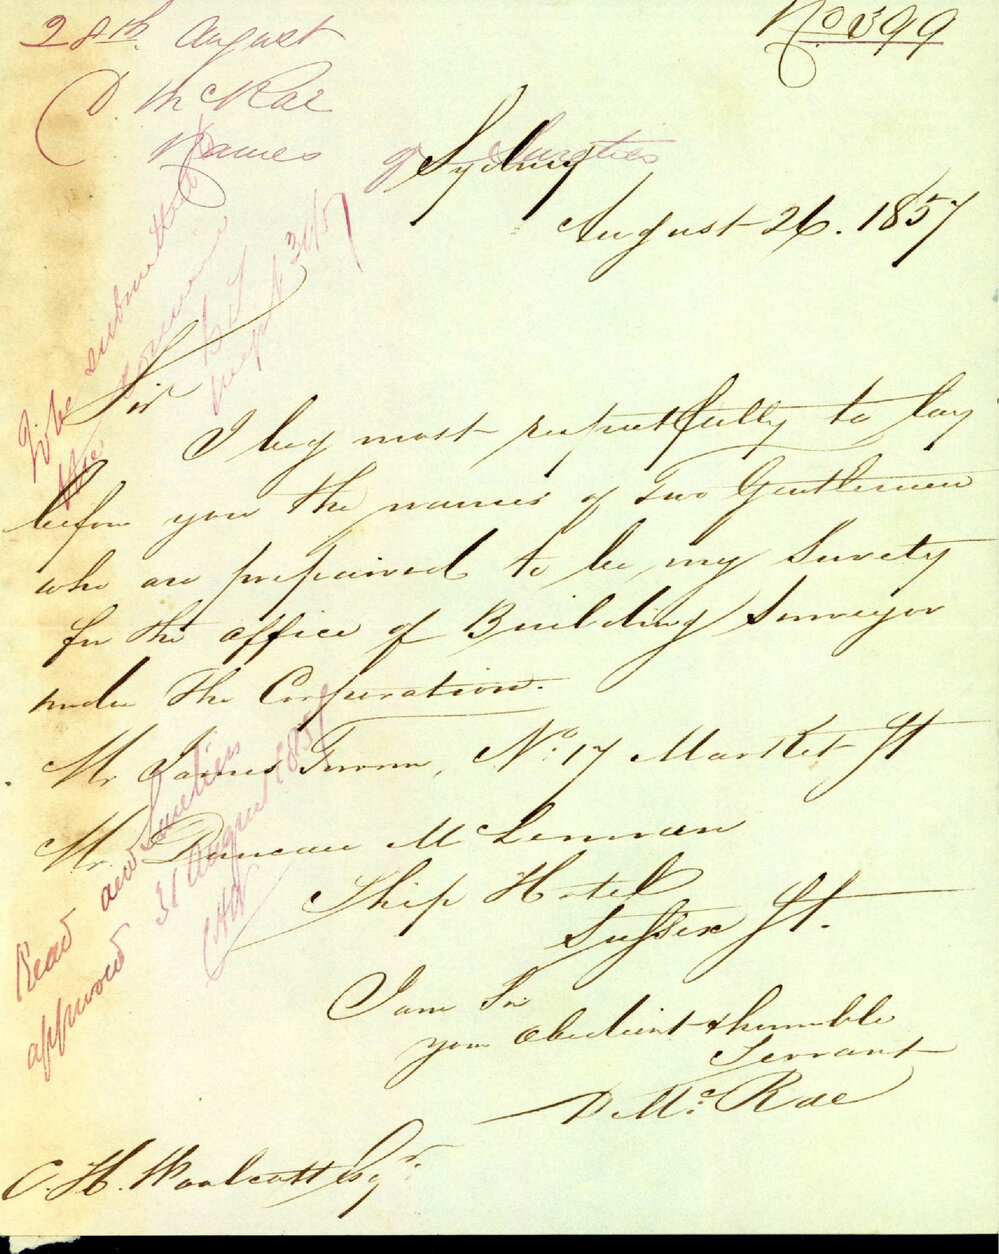 28th. August
No. 399
D. McRae
Names of Sureties
Sydney
August 26. 1857
To be submitted to
the
Sept 3rd/57
Sir
I beg most respectfully to lay
before you the names of two Gentlemen
who are prepaired to be my Surety
for the office of Building Surveyor
under the Corporation.
Mr James, No. 17 Market St
Mr. Duncan McLennan
Ship Hotel
Sussex St.
Read and Sureties
approved 31 August 1857
CHW
I am Sir
your obedient & humble
Servant
D. McRae
C. H. Woolcott Esqr.